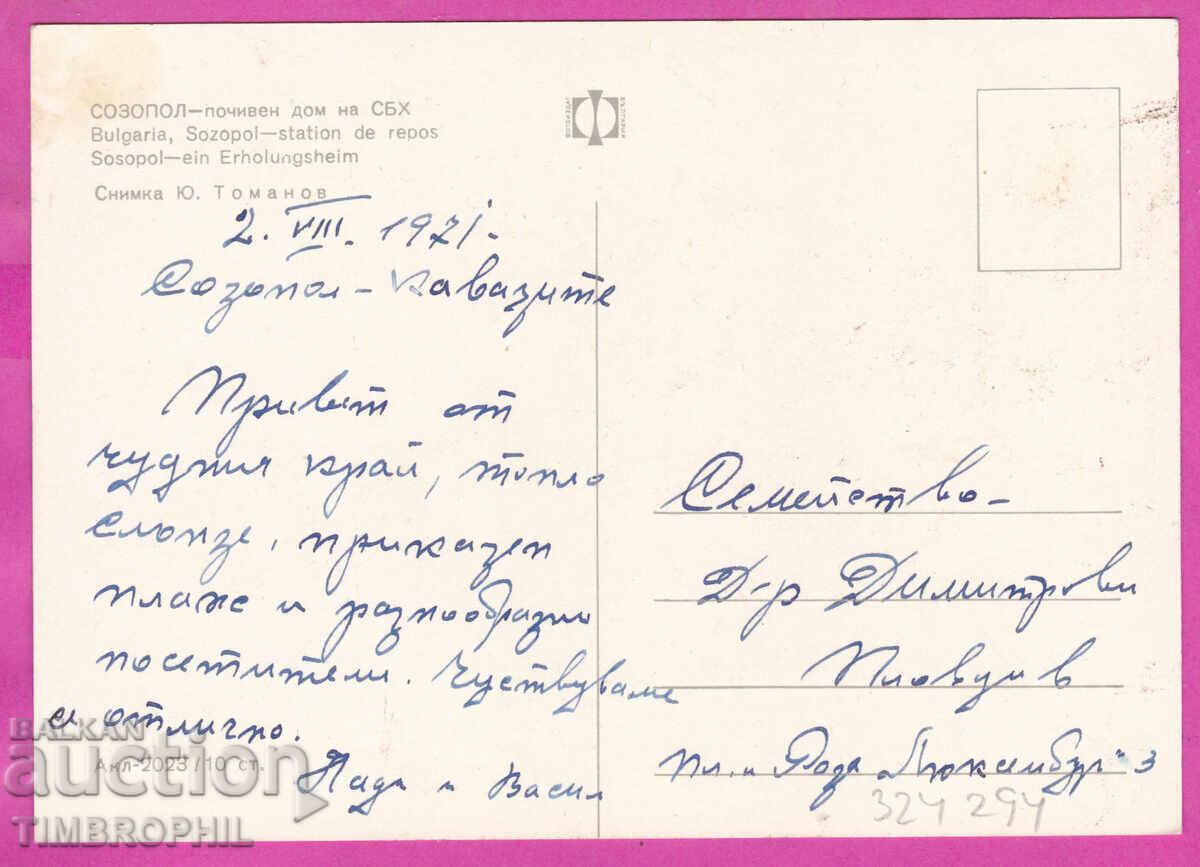 СОЗОПОЛ—почивен дом на СБХ
Bulgaria, Sozopol—station de repos
Sosopol—ein Erholungsheim
Снимка Ю. Томанов
ФОТОИЗДАТ
БЪЛГАРИЯ
2. VIII. 1971.
Созопол - Каваците
Привет от
чудния край, топло
слънце, приказен
плаж и разнообразни
посетители. Чуствуваме
се отлично.
Надя и Васил
Акл-2023/10 ст.
Семейство -
Д-р Димитрови
Пловдив
пл. „Роза Люксембург" 3
324294
BALKAN
auction
TIMBROPHIL